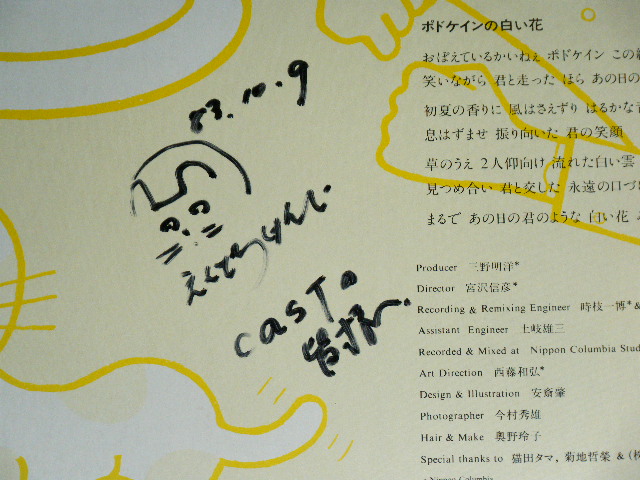 ポドケインの白い花
おぼえているかいねぇ ポドケイン この
笑いながら 君と走った ほら あの日の
初夏の香りに 風はさえずり はるかな
息はずませ 振り向いた 君の笑顔
草のうえ 2人仰向け 流れた白い雲
見つめ合い 君と交した 永遠の口づ
まるで あの日の君のような 白い花
83.10.9
えちぜんけんじ
CAST。
Producer 三野明洋*
Director 宮沢信彦*
Recording & Remixing Engineer 時枝一博* &
Assistant Engineer 土岐雄三
Recorded & Mixed at Nippon Columbia Stud
Art Direction 西藤和弘*
Design & Illustration 安斎肇
Photographer 今村秀雄
Hair & Make 奥野玲子
Special thanks to 猫田タマ, 菊地哲榮 & (株
* Nippon Columbia